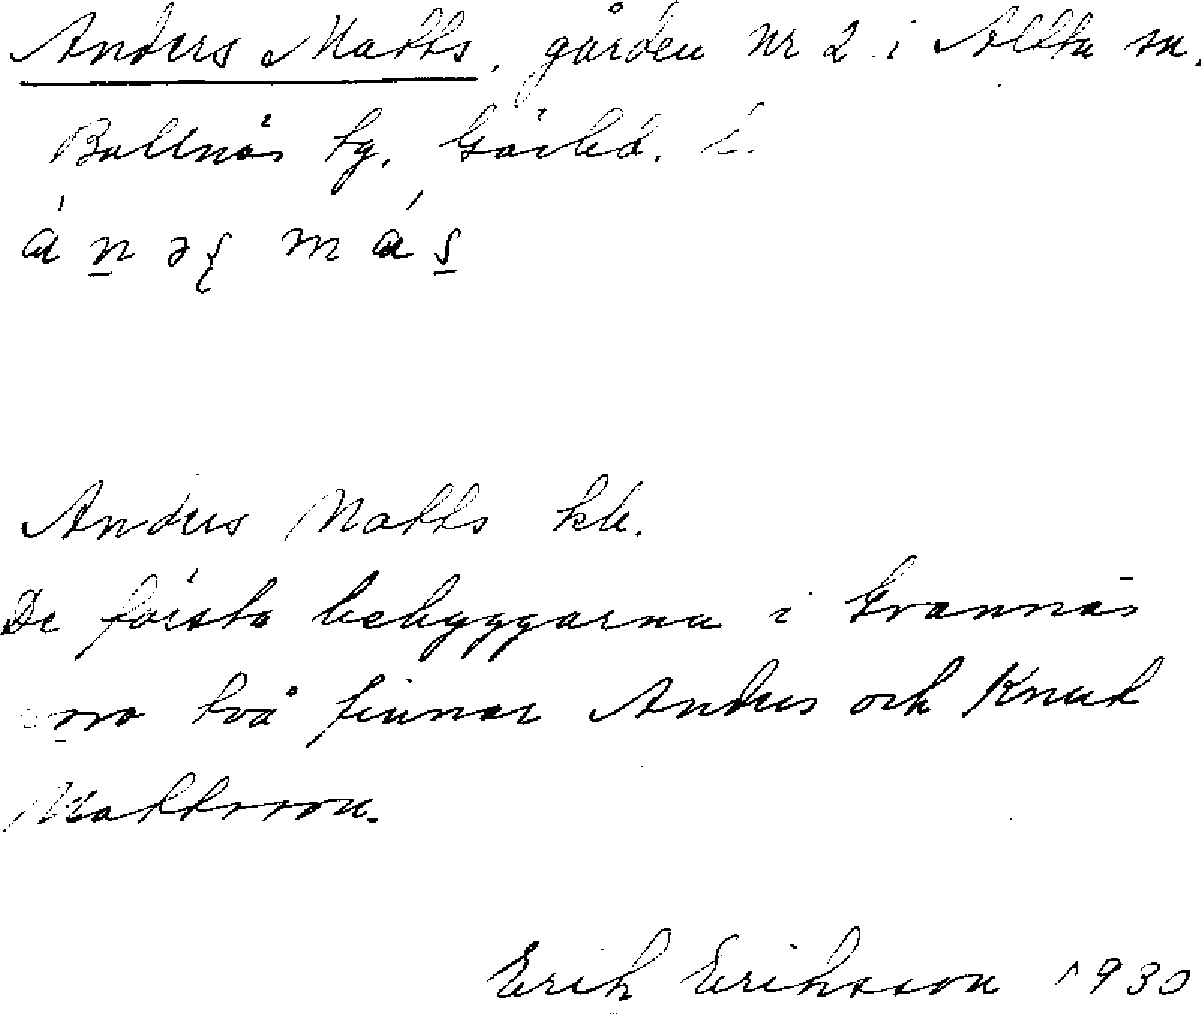 Anders Matts, gården nr 2 i Alfta sn.
Bollnäs tg, Gävleb. l.
Anders Matts kb.
De första bebyggarna i Grannäs
voro två finnar Anders och Knut
Mattsson.
Erik Eriksson 1930